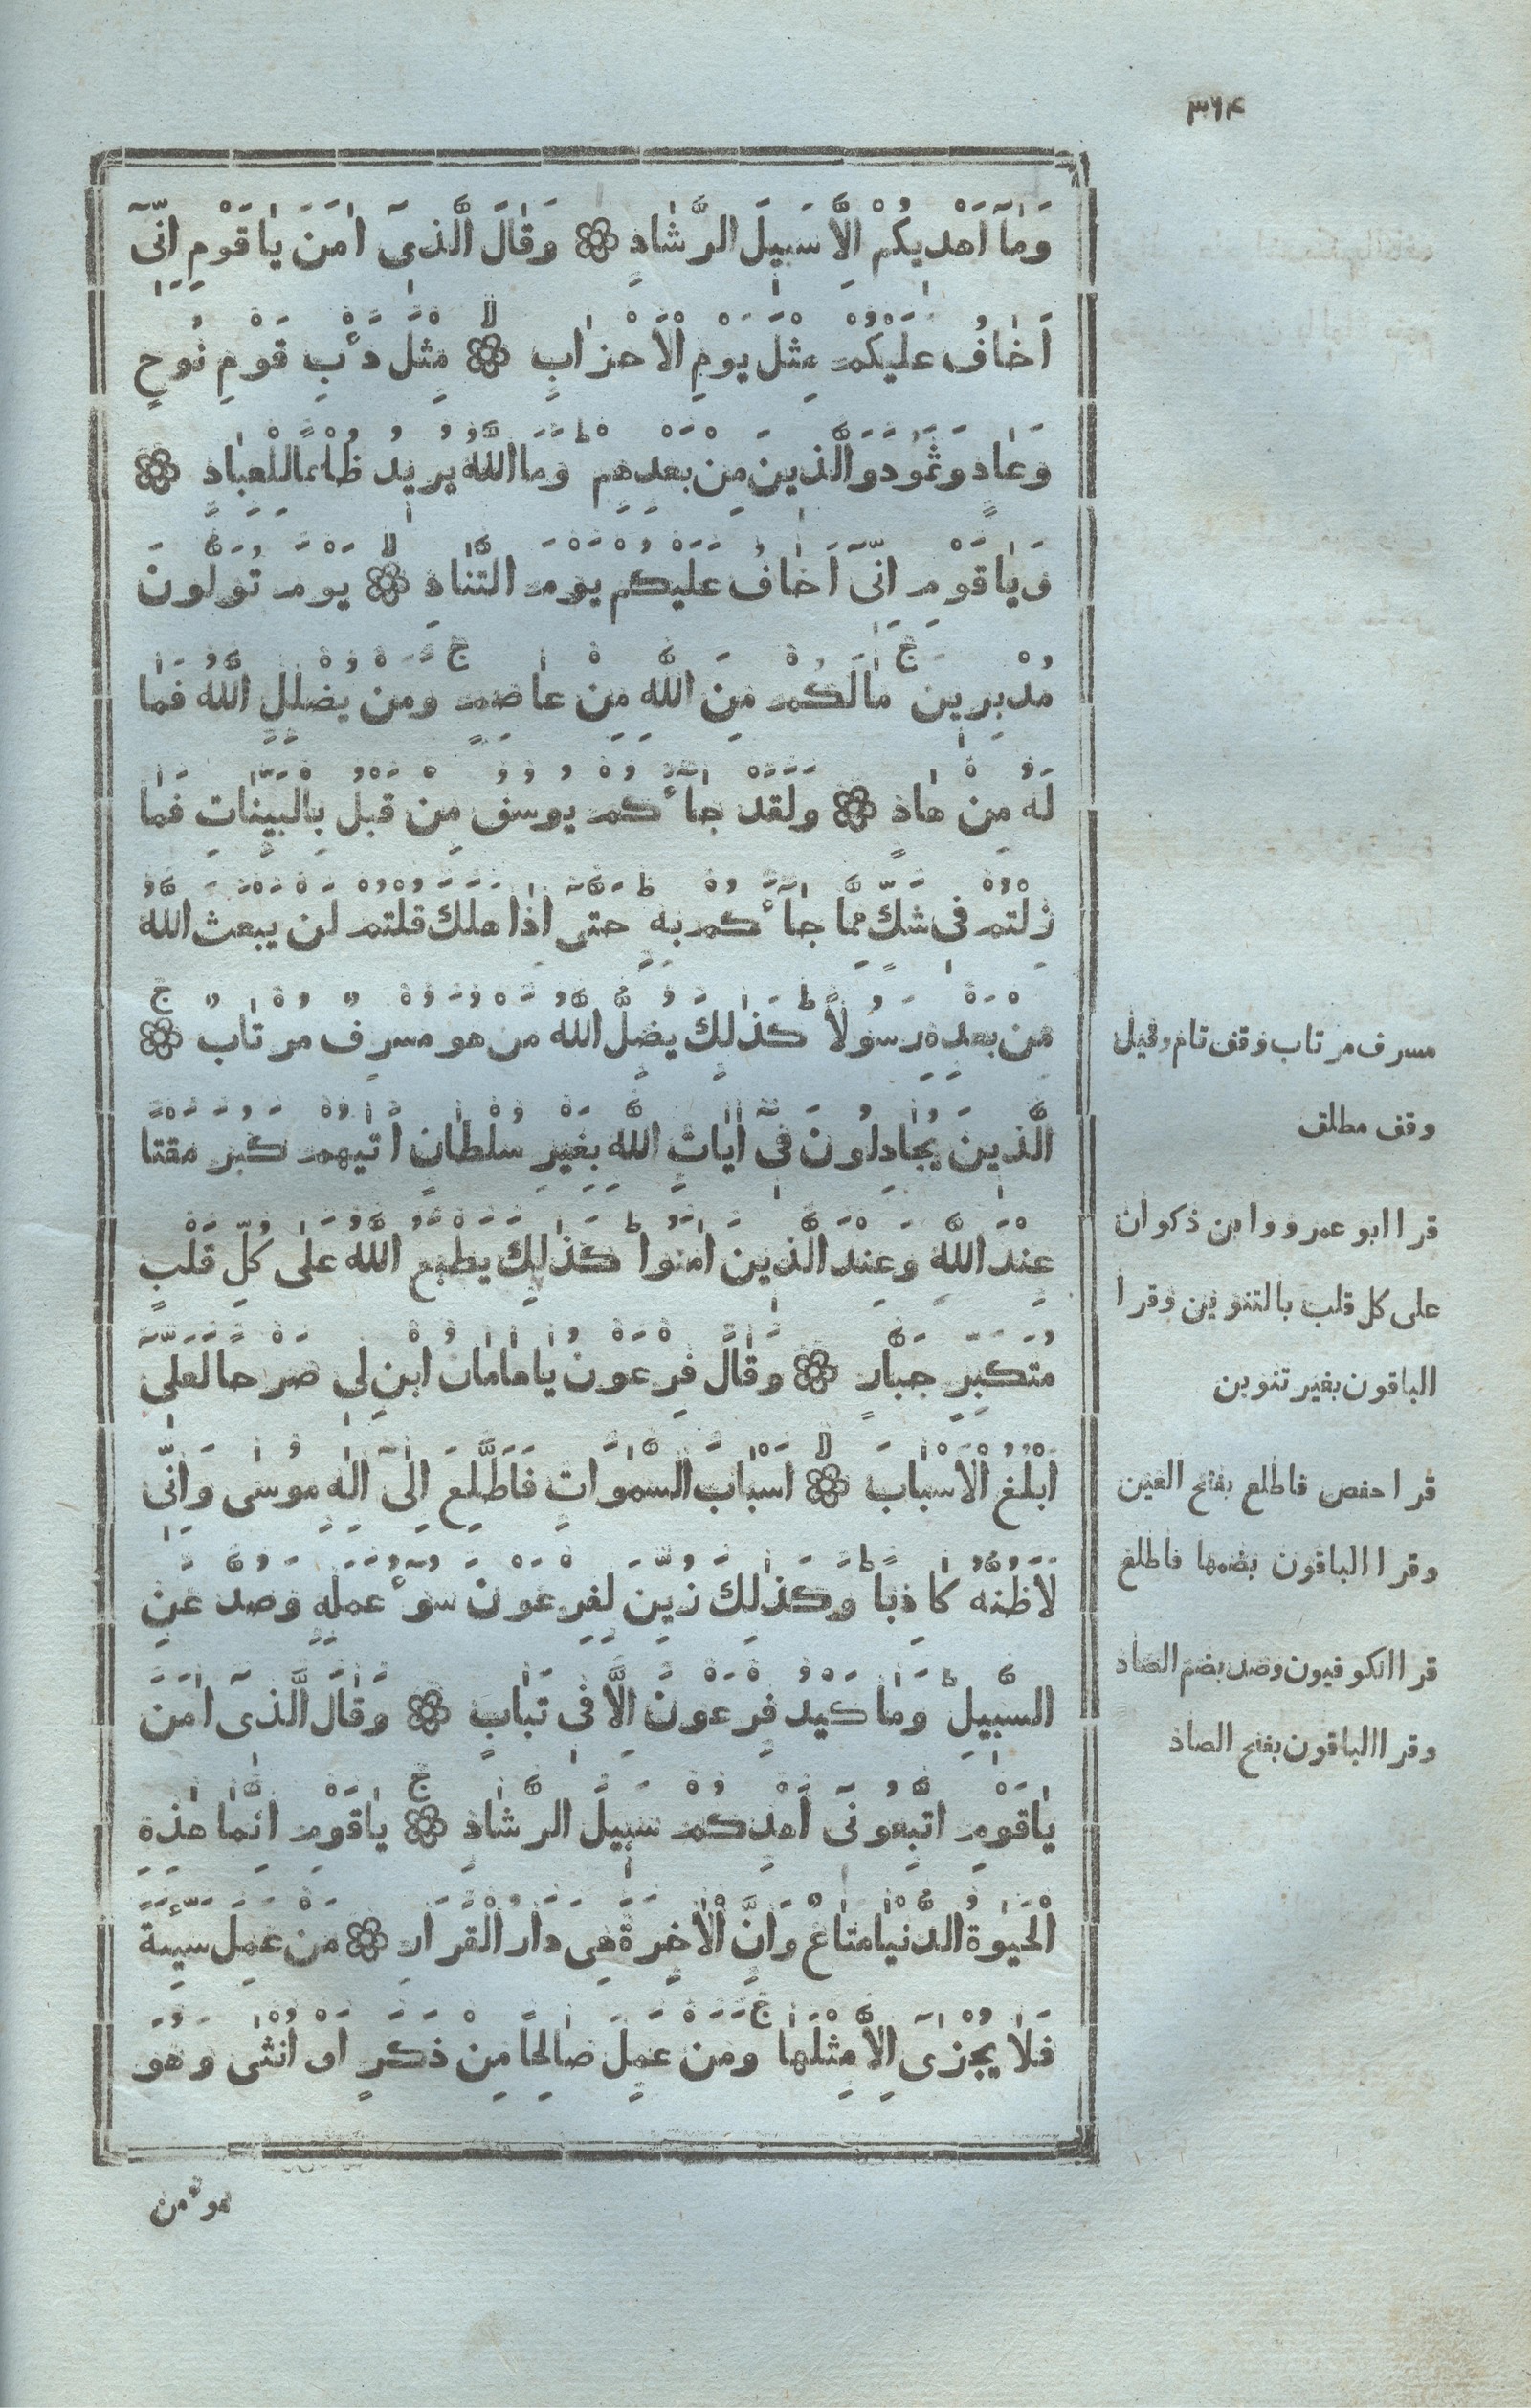 ٣٦٤
وَمٰٓا اَهْدٖيكُمْ اِلَّا سَبٖيلَ الرَّشٰادِ ۞ وَقٰالَ الَّذٖىٓ اٰمَنَ يٰاقَوْمِ اِنّٖىٓ
اَخٰافُ عَلَيْكُمْ مِثْلَ يَوْمِ الْاَحْزٰابِ ۞ مِثْلَ دَأْبِ قَوْمِ نُوحٍ
وَعٰادٍ وَثَمُودَ وَالَّذٖينَ مِنْ بَعْدِهِمْ ط وَمَا اللّٰهُ يُرٖيدُ ظُلْمًا لِلْعِبٰادِ ۞
وَيٰاقَوْمِ اِنّٖىٓ اَخٰافُ عَلَيْكُمْ يَوْمَ التَّنٰادِ ۞ يَوْمَ تُوَلُّونَ
مُدْبِرٖينَ ج مٰالَكُمْ مِنَ اللّٰهِ مِنْ عٰاصِمٍ ج وَمَنْ يُضْلِلِ اللّٰهُ فَمٰا
لَهُ مِنْ هٰادٍ ۞ وَلَقَدْ جٰٓاءَكُمْ يُوسُفُ مِنْ قَبْلُ بِالْبَيِّنٰاتِ فَمٰا
زِلْتُمْ فٖى شَكٍّ مِمَّا جٰٓاءَكُمْ بِهِ ط حَتَّىٓ اِذٰا هَلَكَ قُلْتُمْ لَنْ يَبْعَثَ اللّٰهُ
مِنْ بَعْدِهِ رَسُولًا ط كَذٰلِكَ يُضِلُّ اللّٰهُ مَنْ هُوَ مُسْرِفٌ مُرْتٰابٌ ج ۞
الَّذٖينَ يُجٰادِلُونَ فٖىٓ اٰيٰاتِ اللّٰهِ بِغَيْرِ سُلْطٰانٍ اَتٰيهُمْ كَبُرَ مَقْتًا
عِنْدَ اللّٰهِ وَعِنْدَ الَّذٖينَ اٰمَنُوا ط كَذٰلِكَ يَطْبَعُ اللّٰهُ عَلٰى كُلِّ قَلْبِ
مُتَكَبِّرٍ جَبَّارٍ ۞ وَقٰالَ فِرْعَوْنُ يٰاهٰامٰانُ ابْنِ لٖى صَرْحًا لَعَلّٖىٓ
اَبْلُغُ الْاَسْبٰابَ ۞ اَسْبٰابَ السَّمٰوٰاتِ فَاَطَّلِعَ اِلٰىٓ اِلٰهِ مُوسٰى وَاِنّٖى
لَاَظُنُّهُ كٰاذِبًا ط وَكَذٰلِكَ زُيِّنَ لِفِرْعَوْنَ سُوٓءُ عَمَلِهِ وَصُدَّ عَنِ
السَّبٖيلِ ط وَمٰا كَيْدُ فِرْعَوْنَ اِلَّا فٖى تَبٰابٍ ۞ وَقٰالَ الَّذٖىٓ اٰمَنَ
يٰاقَوْمِ اتَّبِعُونٖىٓ اَهْدِكُمْ سَبٖيلَ الرَّشٰادِ ج ۞ يٰاقَوْمِ اِنَّمٰا هٰذِهِ
الْحَيٰوةُ الدُّنْيٰا مَتٰاعٌ وَاِنَّ الْاٰخِرَةَ هِىَ دٰارُ الْقَرٰارِ ۞ مَنْ عَمِلَ سَيِّئَةً
فَلٰا يُجْزٰىٓ اِلَّا مِثْلَهٰا ج وَمَنْ عَمِلَ صٰالِحًا مِنْ ذَكَرٍ اَوْ اُنْثٰى وَهُوَ
مؤمن
مسرف مرتاب وقف تام وقيل
وقف مطلق
قرا ابو عمرو وابن ذكوان
على كل قلب بالتنوين وقرا
الباقون بغير تنوين
قرا حفص فاطلع بفتح العين
وقرا الباقون بضمها فاطلع
قرا الكوفيون وصد بضم الصاد
وقرا الباقون بفتح الصاد